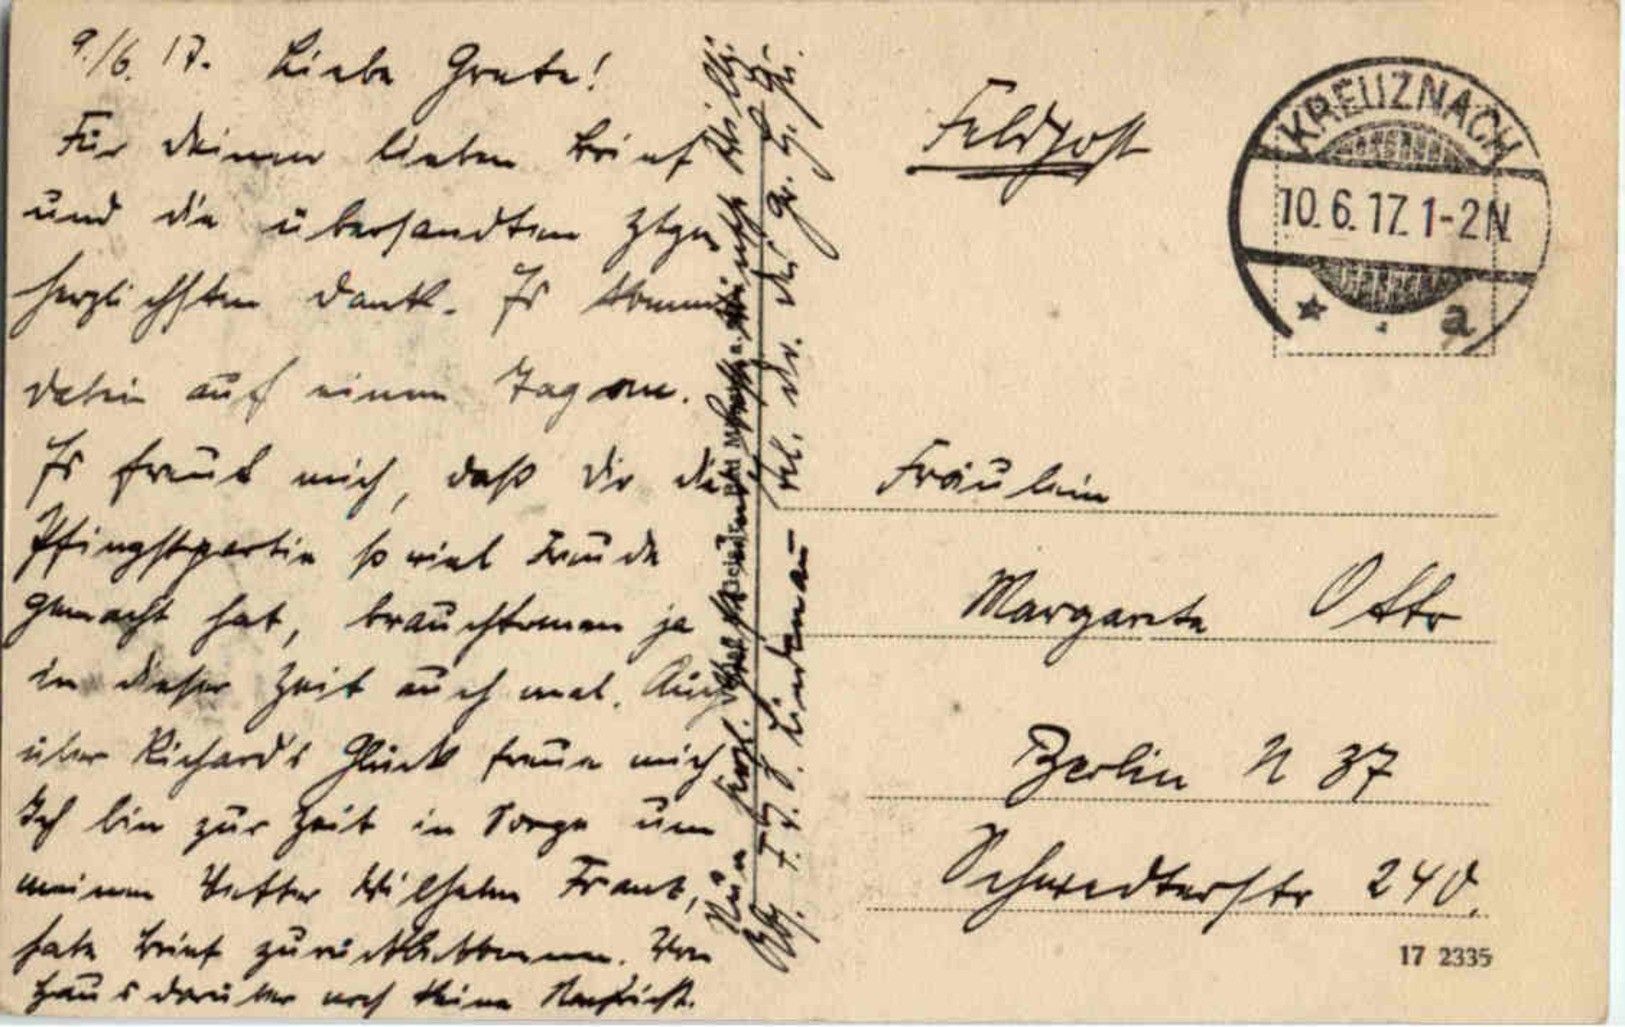 9./6. 17. Liebe Grete!
Für deinen lieben Brief
und die übersandten Ztgn
herzlichsten Dank. Es kommt
dahin auf einen Tag an.
Es freut mich, daß Dir die
Pfingstpartie so viel Freude
gemacht hat, braucht man ja
in dieser Zeit auch mal. Auch
über Richard's Glück freue mich
Ich bin zur Zeit in Sorge um
meinen Vetter Wilhelm Frank,
habe Brief zurückbekommen. Von
Haus darüber noch keine Nachricht.
Nun
Abs. Lindenau
Feldpost
KREUZNACH
10.6.17.1-2N.
* a
Fräulein
Margarete Otto
Berlin N 37
Schwedterstr 240.
17 2335